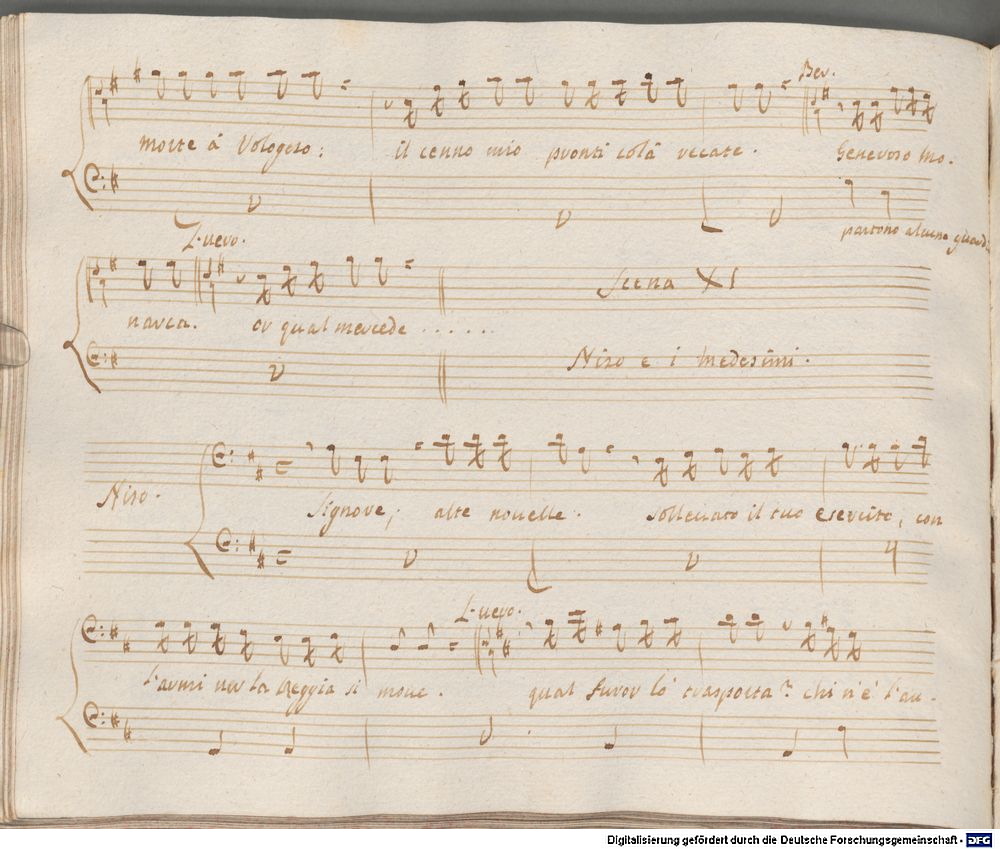 Ber.
morte á Vologeso: il cenno mio pronti colâ recate. Generoso Mo-
partono alcune guardie
L. uero.
narca. or qual mercede ......
Scena XI
Niso e i Medesimi.
Niso.
Signore; alte nouelle. solleuato il tuo esercito, con
L. uero.
l'armi ver la Reggia si moue. qual furor lo trasporta? chi n'é l'au-
Digitalisierung gefördert durch die Deutsche Forschungsgemeinschaft - DFG